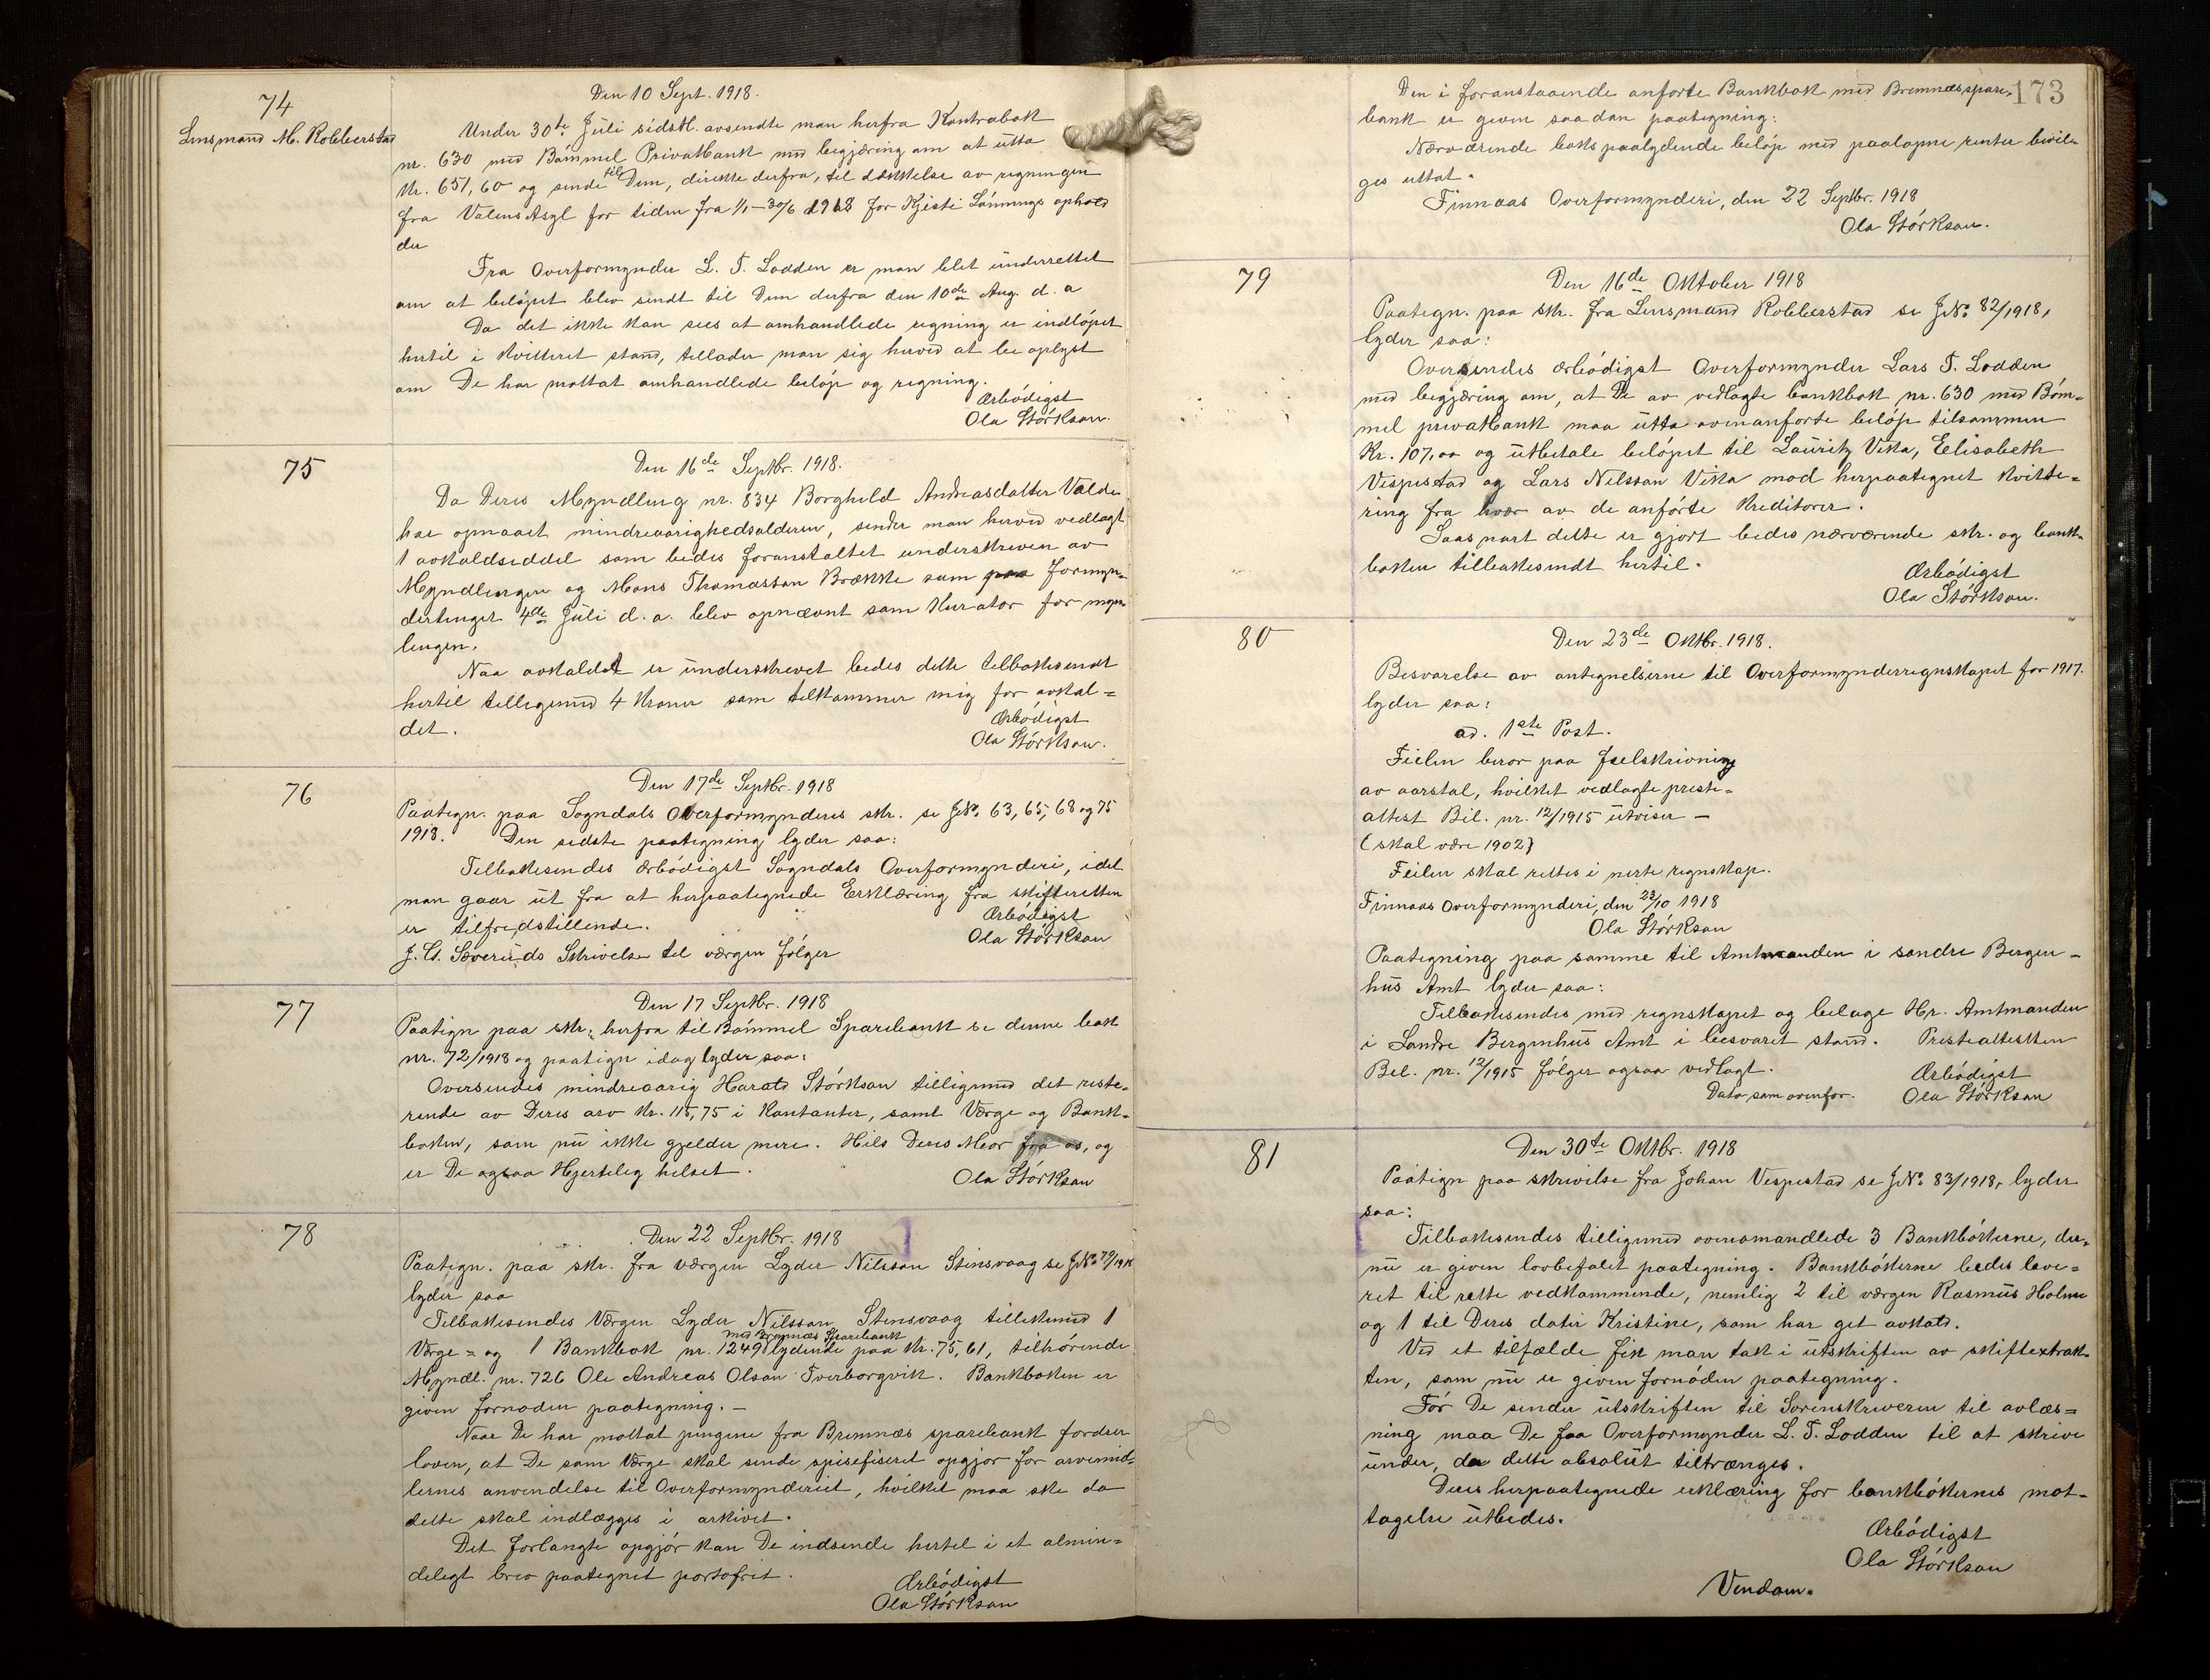 74
Lensmand M. Robberstad
Den 10 Sept. 1918.
Under 30te Juli sidstl. avsendte man herfra Kontrabok
nr. 630 med Bömmel Privatbank med begjæring om at utta
Kr. 651,60 og sende til Dem, direkte derfra, til dækkelse av regningen
fra Valens Asyl for tiden fra 1/1 - 30/6 1918 for Kjisti Lönnings ophold
der
Fra Overformynder L. T. Lodden er man blet underrettet
om at belöpet blev sendt til Dem derfra den 10de Aug. d. a
Da det ikke kan sees at omhandlede regning er indlöpet
hertil i kvitteret stand, tillader man sig herved at be oplyst
om De har mottat omhandlede belöp og regning.
Ærbödigst
Ola Störkson.
75
Den 16de Septbr. 1918.
Da Deres Myndling nr. 834 Borghild Andreasdatter Valde
har opnaaet mindreaarighedsalderen, sender man herved vedlagt
1 avkaldseddel som bedes foranstaltet underskreven av
Myndlingen og Mons Thomasson Brække som paa formyn-
dertinget 4de Juli d. a. blev opnævnt som Kurator for myn-
lingen.
Naa avkaldet er underskrevet bedes dette tilbakesendt
hertil tilligemed 4 Kroner som tilkommer mig for avkal=
det.
Ærbödigst
Ola Störkson.
76
Den 17de Septbr. 1918
Paategn. paa Sogndals Overformynderis skr. se JNo. 63, 65, 68 og 75
1918. Den sidste paategning lyder saa:
Tilbakesendes ærbödigst Sogndals Overformynderi, idet
man gaar ut fra at herpaategnede Erklæring fra skifteretten
er tilfredstillende.
Ærbödigst
Ola Störkson
J. G. Severeids Skrivelse til værgen fölger
77
Den 17 Septbr. 1918
Paategn paa skr. herfra til Bömmel Sparebank se denne bok
nr. 72/1918 og paategn idag lyder saa:
Oversendes mindreaarig Harald Störkson tilligemed det reste-
rende av Deres arv Kr. 115,75 i Kontanter, samt Værge og Bank-
boken, som nu ikke gjelder mere. Hils Deres Mor fra os, og
er De ogsaa Hjertelig hilset.
Ola Störkson
78
Den 22 Septbr. 1918
Paategn. paa skr. fra værgen Lyder Nilsson Stensvaag se JNo 79/1918
lyder saa
Tilbakesendes Værgen Lyder Nilsson Stensvaag tillikemed 1
med Bremnæs Sparebank
Værge= og 1 Bankbok nr. 1249 lydende paa Kr. 75,61, tilhörende
Myndl. nr. 726 Ole Andreas Olson Tverborgvik. Bankboken er
given fornöden paategning. -
Naar De har mottat pengene fra Bremnæs sparebank fordrer
loven, at De som Værge skal sende spisefiseret opgjör for arvemid-
lernes anvendelse til Overformynderiet, hvilket maa ske da
dette skal indlægges i arkivet.
Det forlangte opgjör kan De indsende hertil i et almin=
deligt brev paategnet portofrit.
Ærbödigst
Ola Störkson
173
Den i foranstaaende anförte Bankbok med Bremnæs spare-
bank er given saadan paategning:
Nærværende boks paalydende belöp med paalöpne renter bevil-
ges uttat.
Finnaas Overformynderi, den 22 Septbr. 1918
Ola Störkson.
79
Den 16de Oktober 1918
Paategn. paa skr. fra Lensmand Robberstad se JNo. 82/1918,
lyder saa:
Oversendes ærbödigst Overformynder Lars T. Lodden
med begjæring om, at De av vedlagte bankbok nr. 630 med Böm=
mel privatbank maa utta ovenanförte belöp tilsammen
Kr. 107,00 og utbetale belöpet til Lauritz Vika, Elisabeth
Vespestad og Lars Nilsson Vika mod herpaategnet kvitte=
ring fra hver av de anförte Kreditorer.
Saasnart dette er gjort bedes nærværende skr. og bank-
boken tilbakesendt hertil.
Ærbödigst
Ola Störkson.
80
Den 23de Oktbr. 1918.
Besvarelse av antegnelserne til Overformynderregnskapet for 1917.
lyder saa:
ad. 1ste Post.
Feilen beror paa feelskrivning
av aarstal, hvilket vedlagte preste=
attest Bil. nr. 12/1915 utviser —
(skal være 1902)
Feilen skal rettes i neste regnskap.
Finnaas Overformynderi, den 23/10 1918
Ola Störkson
Paategning paa samme til Amtmanden i söndre Bergen=
hus Amt lyder saa:
Tilbakesendes med regnskapet og belage Hr. Amtmanden
i Söndre Bergenhus Amt i besvaret stand. Presteattesten
Bel. nr. 12/1915 fölger ogsaa vedlagt.
Ærbödigst
Dato som ovenfor. Ola Störkson
81
Den 30te Oktbr. 1918
Paategn paa skrivelse fra Johan Vespestad se JNo. 83/1918, lyder
saa:
Tilbakesendes tilligemed ovenomandlede 3 Bankbökerne, der-
nu er given lovbefalet paategning. Bankbökerne bedes leve=
ret til rette vedkommende, nemlig 2 til værgen Rasmus Holme
og 1 til Deres dater Kristine, som har get avkald.
Ved et tilfælde fik man tak i utskriften av skiftextrak-
ten, som nu er given fornöden paategning.
För De sender utskriften til Sorenskriveren til avlæs=
ning maa De faa Overformynder L. T. Lodden til at skrive
under, da dette absolut tiltrænges.
Deres herpaategnede erklæring for bankbökernes mot-
tagelse utbedes.
Ærbödigst
Ola Störkson
Vendom.